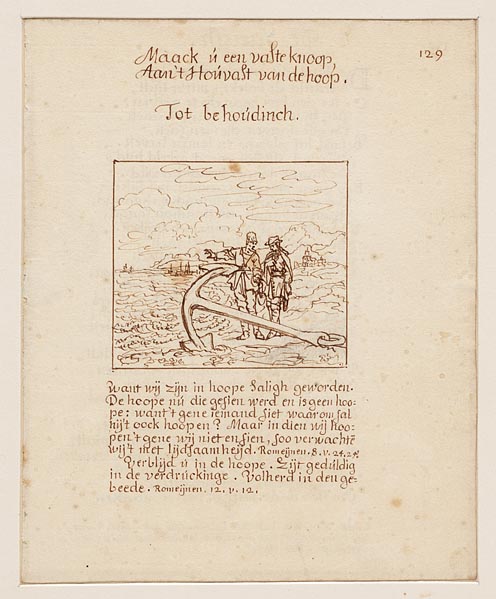 Maack ú een vaste knoop,
Aan't Houvast van de hoop.
129
Tot behoúdinch.
Want wij zijn in hoope Saligh geworden.
De hoope nú die gesien werd en is geen hoo=
pe: want 't gene iemand siet waarom sal
hij't oock hoopen? Maar in dien wij hoo=
pen't gene wij niet en sien, soo verwachte
wij't met lijdsaamheijd. Romeijnen. 8. v. 24. 25.
Verblijd ú in de hoope. Zijt gedúldig
in de verdrúckinge. Volherd in den ge=
beede. Romeijnen. 12. v. 12.